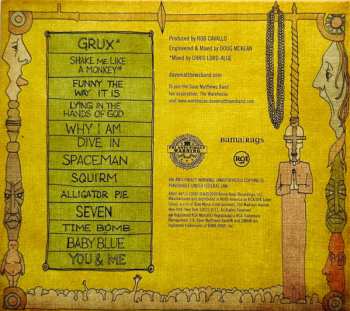 GRUX*
SHAKE ME LIKE
A MONKEY*
FUNNY THE
WAY IT IS
LYING IN THE
HANDS OF GOD
WHY I AM
DIVE IN
SPACEMAN
SQUIRM
ALLIGATOR PIE
SEVEN
TIME BOMB
BABY BLUE
YOU & ME
Produced by ROB CAVALLO
Engineered & Mixed by DOUG MCKEAN
*Mixed by CHRIS LORD-ALGE
davematthewsband.com
To join the Dave Matthews Band
fan association, The Warehouse
visit www.warehouse.davematthewsband.com
bama rags
RCA
FBI ANTI-PIRACY WARNING: UNAUTHORIZED COPYING IS
PUNISHABLE UNDER FEDERAL LAW.